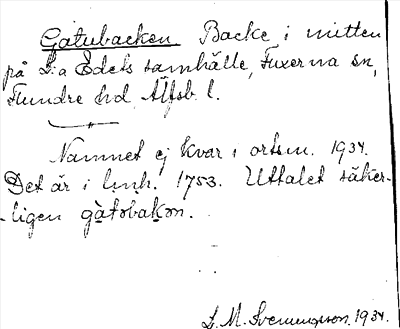 Gatubacken Backe i mitten
på L:a Edets samhälle, Fuxerna sn,
Flundre hd, Älfsb. l.
Namnet ej kvar i ortsn. 1934.
Det är i lmh. 1753. Uttalet säker-
-ligen gàtobakɔn.
L. M. Svenungsson, 1934.